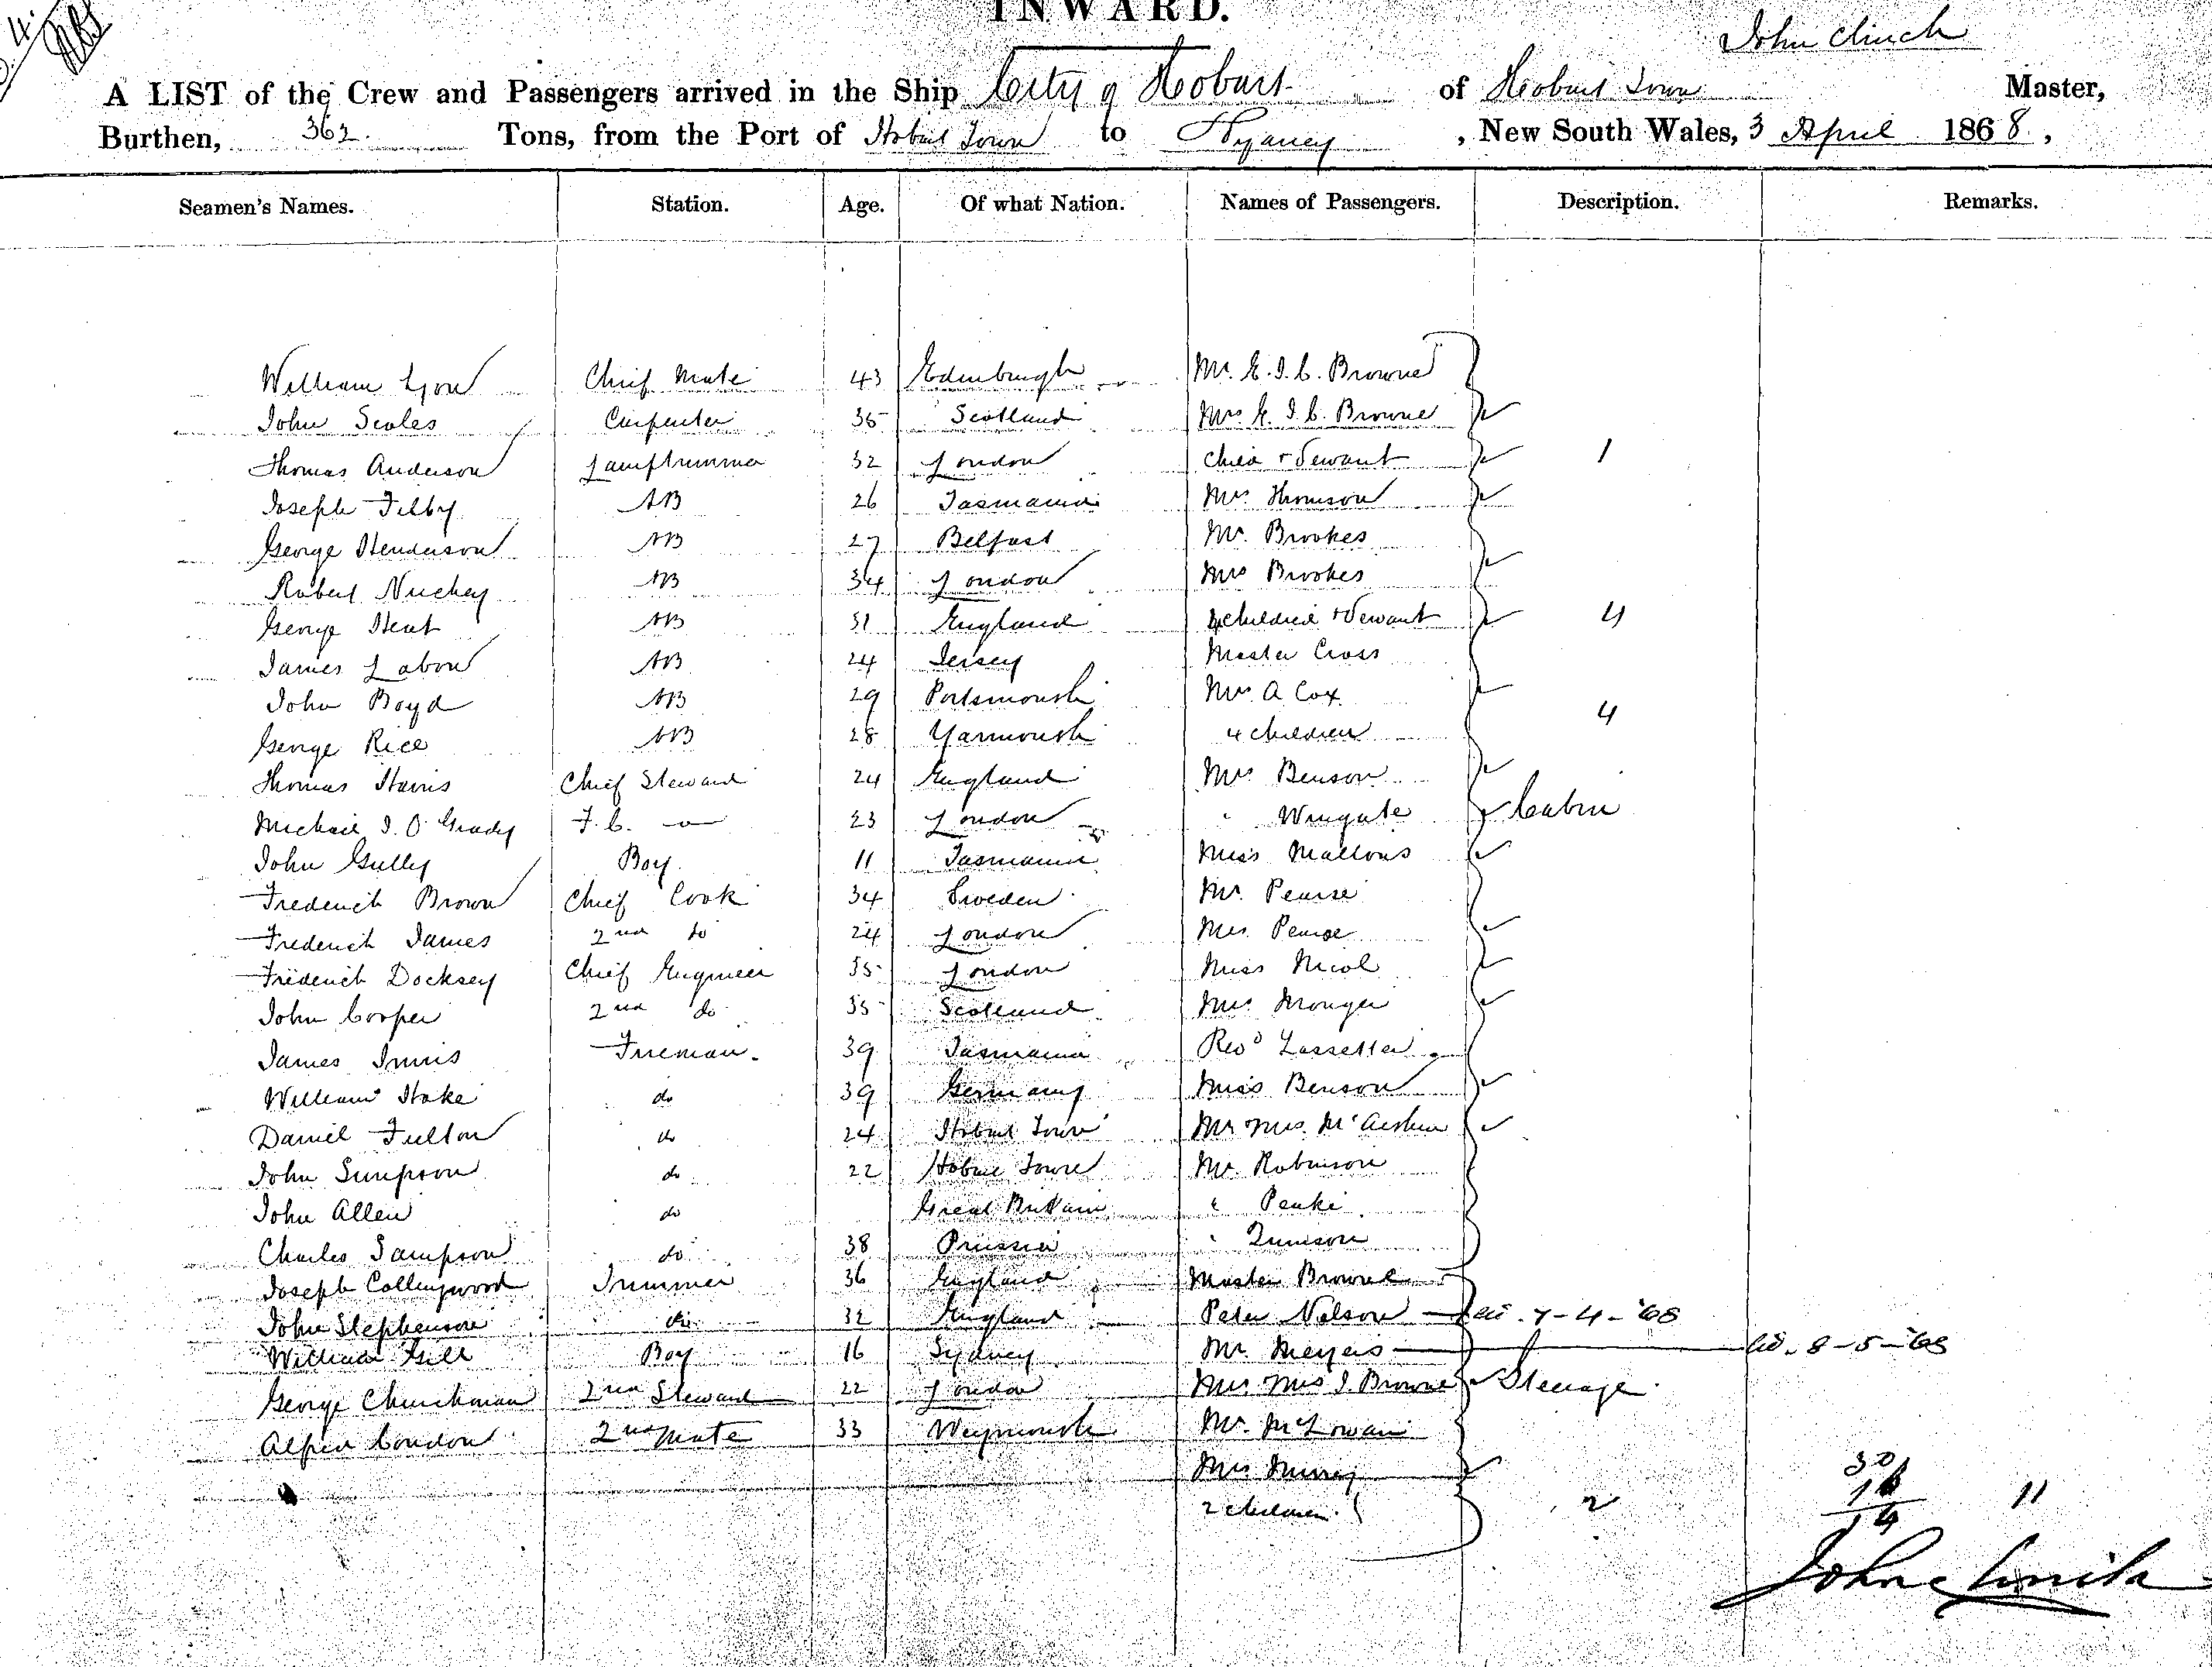 INWARD.
John Clinch
A LIST of the Crew and Passengers arrived in the Ship City of Hobart of Hobart Town Master,
Burthen, 363. Tons, from the Port of Hobart Town to Sydney, New South Wales, 3 April 1868,
Seamen's Names. Station. Age. Of what Nation. Names of Passengers. Description. Remarks.
William Lyon Chief Mate 43 Edinburgh Mr. E. I. C. Browne
John Scoles Carpenter 35 Scotland Mrs E. I. C. Browne
Thomas Anderson Lamptrimmer 32 London Child + Servant 1
Joseph Filby AB 26 Tasmania Mrs Thomson
George Henderson AB 27 Belfast Mr. Brookes
Robert Nuckey AB 34 London Mrs Brookes
George Heat AB 31 England 4 children + Servant 4
James Labow AB 24 Jersey Master Cross
John Boyd AB 29 Portsmouth Mrs A Cox
George Rice AB 28 Yarmouth 4 children 4
Thomas Harris Chief Steward 24 England Mrs Benson
Michael J. O'Grady F. C. do 23 London " Wingate Cabin
John Gully Boy 11 Tasmania Miss Mallows
Frederick Brown Chief Cook 34 Sweden Mr. Pearse
Frederick James 2nd do 24 London Mrs Pearse
Frederick Docksey Chief Engineer 35 London Miss Nicol
John Cooper 2nd do 35 Scotland Mrs Monger
James Innis Fireman. 39 Tasmania Revd Lassetter
William Hake do 39 Germany Miss Benson
Daniel Fulton do 24 Hobart Town Mr Mrs McArthur
John Simpson do 22 Hobart Town Mr. Robinson
John Allen do Great Britain "
Charles Sampson do 38 Prussia "
Joseph Collingwood Trimmer 36 England Master Browne
John Stephenson do 32 England Peter Nelson 7-4-'68
William Gill Boy 16 Sydney Mr. Meyers 8-5-'68
George Churchman 2nd Steward 22 London Mr Mrs J. Browne Steerage
Alfred Condon 2nd Mate 33 Weymouth Mr.
Mrs Murray
2 children 2 30 11